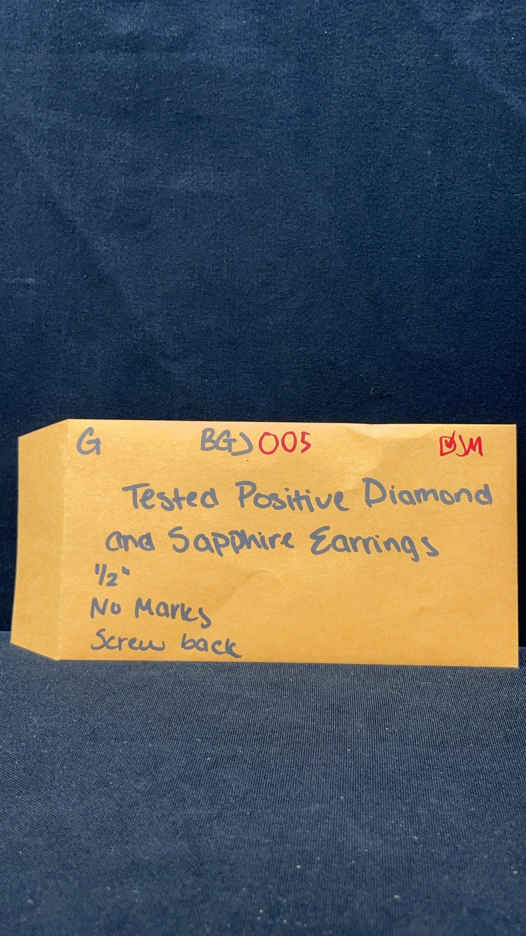 G BGJ 005 JM
Tested Positive Diamond
and Sapphire Earrings
1/2"
No Marks
Screw back